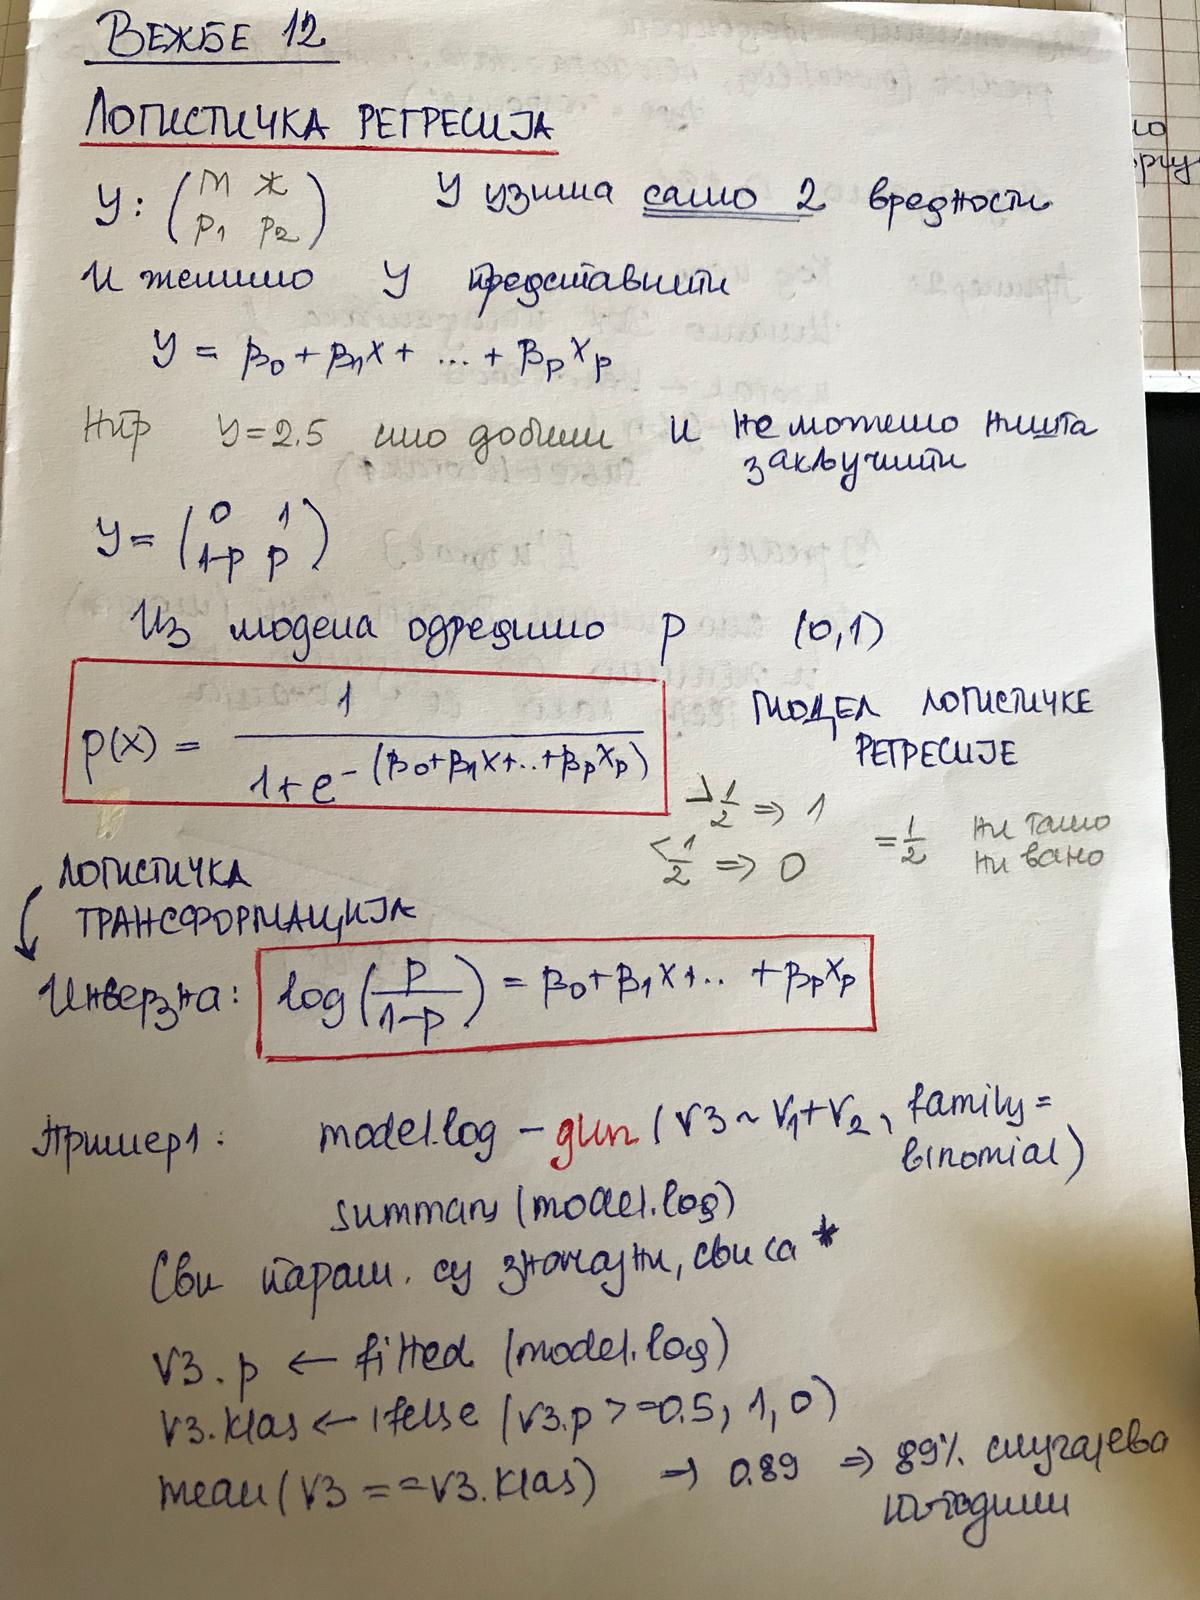 ВЕЖБЕ 12
ЛОГИСТИЧКА РЕГРЕСИЈА
У: (М Ж
p1 p2)
У узима само 2 вредности
И желимо У представити
У = β0 + β1X + ... + βpXp
Нпр У=2.5 смо добили и не можемо ништа
закључити
У = (0 1
1-p p)
Из модела одредимо p (0,1)
p(X) = 1 / (1+e^-(β0+β1X+..+βpXp))
МОДЕЛ ЛОГИСТИЧКЕ
РЕГРЕСИЈЕ
>1/2 ⇒ 1
<1/2 ⇒ 0
=1/2 ни тамо
ни вамо
ЛОГИСТИЧКА
ТРАНСФОРМАЦИЈА
Инверзна: log(p/(1-p)) = β0+β1X+.. +βpXp
Пример1: model.log – glm (V3 ~ V1+V2, family=
binomial)
summary (model.log)
Сви парам. су значајни, сви са *
V3.p ← fitted (model.log)
V3.klas ← ifelse (V3.p >=0.5, 1, 0)
mean (V3 == V3.klas) ⇒ 0.89 ⇒ 89% случајева
погодили